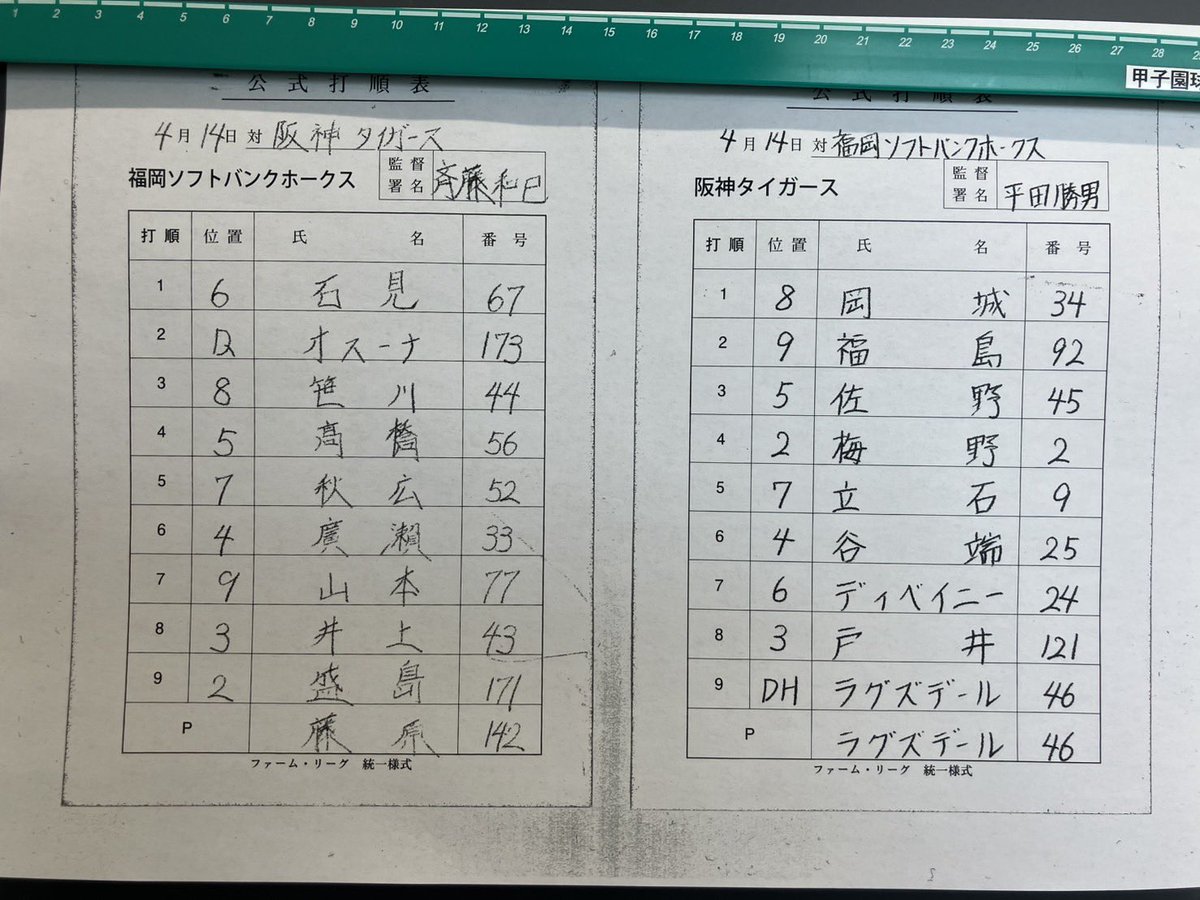 1 2 3 4 5 6 7 8 9 10 11 12 13 14 15 16 17 18 19 20 21 22 23 24 25 26 27 28
甲子園球
公式打順表
4月14日 対 阪神タイガース
福岡ソフトバンクホークス
監督署名 斉藤和巳
打順 位置 氏名 番号
1 6 石見 67
2 D オスーナ 173
3 8 笹川 44
4 5 高橋 56
5 7 秋広 52
6 4 廣瀬 33
7 9 山本 77
8 3 井上 43
9 2 盛島 171
P 藤原 142
ファーム・リーグ 統一様式
公式打順表
4月14日 対 福岡ソフトバンクホークス
阪神タイガース
監督署名 平田勝男
打順 位置 氏名 番号
1 8 岡城 34
2 9 福島 92
3 5 佐野 45
4 2 梅野 2
5 7 立石 9
6 4 谷端 25
7 6 ディベイニー 24
8 3 戸井 121
9 DH ラグズデール 46
P ラグズデール 46
ファーム・リーグ 統一様式